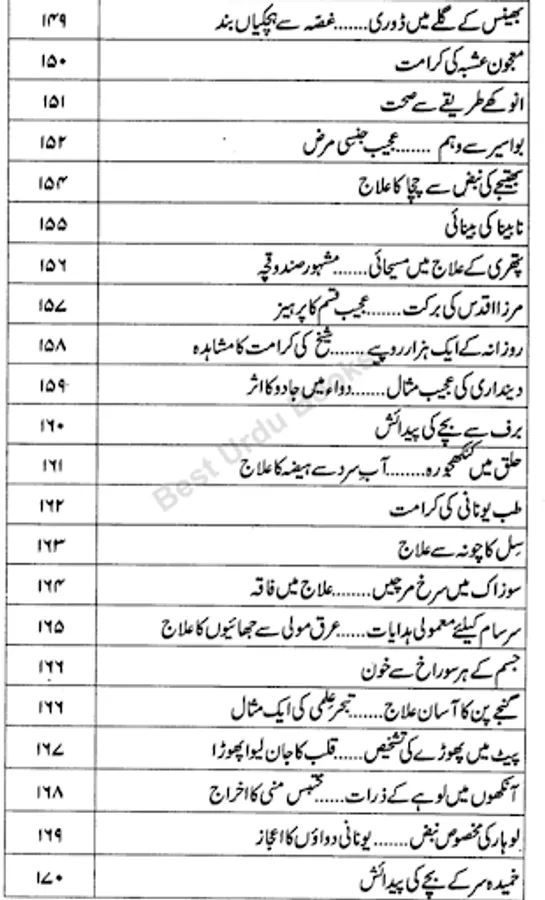 بھینس کے گلے میں ڈوری.......غصہ سے ہچکیاں بند ۱۴۹
معجون عشبہ کی کرامت ۱۵۰
انوکھے طریقے سے صحت ۱۵۱
بواسیر سے وہم .......عجیب جنسی مرض ۱۵۲
بھتیجے کی نبض سے چچا کا علاج ۱۵۴
نابینا کی بینائی ۱۵۵
پتھری کے علاج میں مسیحائی.......مشہور صندوقچہ ۱۵۶
مرزا اقدس کی برکت.......عجیب قسم کا پرہیز ۱۵۷
روزانہ کے ایک ہزار روپے.......شیخ کی کرامت کا مشاہدہ ۱۵۸
دینداری کی عجیب مثال.......دواء میں جادو کا اثر ۱۵۹
برف سے بچے کی پیدائش ۱۶۰
حلق میں کنکھجورہ........آب سرد سے ہیضہ کا علاج ۱۶۱
طب یونانی کی کرامت ۱۶۲
سِل کا چونہ سے علاج ۱۶۳
سوزاک میں سرخ مرچیں........علاج میں فاقہ ۱۶۴
سرسام کیلئے معمولی ہدایات......عرق مولی سے چھائیوں کا علاج ۱۶۵
جسم کے ہر سوراخ سے خون ۱۶۶
گنجے پن کا آسان علاج.......تبحر علمی کی ایک مثال ۱۶۶
پیٹ میں پھوڑے کی تشخیص......قلب کا جان لیوا پھوڑا ۱۶۷
آنکھوں میں لوہے کے ذرات......محتبس منی کا اخراج ۱۶۸
لوہار کی مخصوص نبض.......یونانی دواؤں کا اعجاز ۱۶۹
خمیدہ سر کے بچے کی پیدائش ۱۷۰
Best Urdu Books